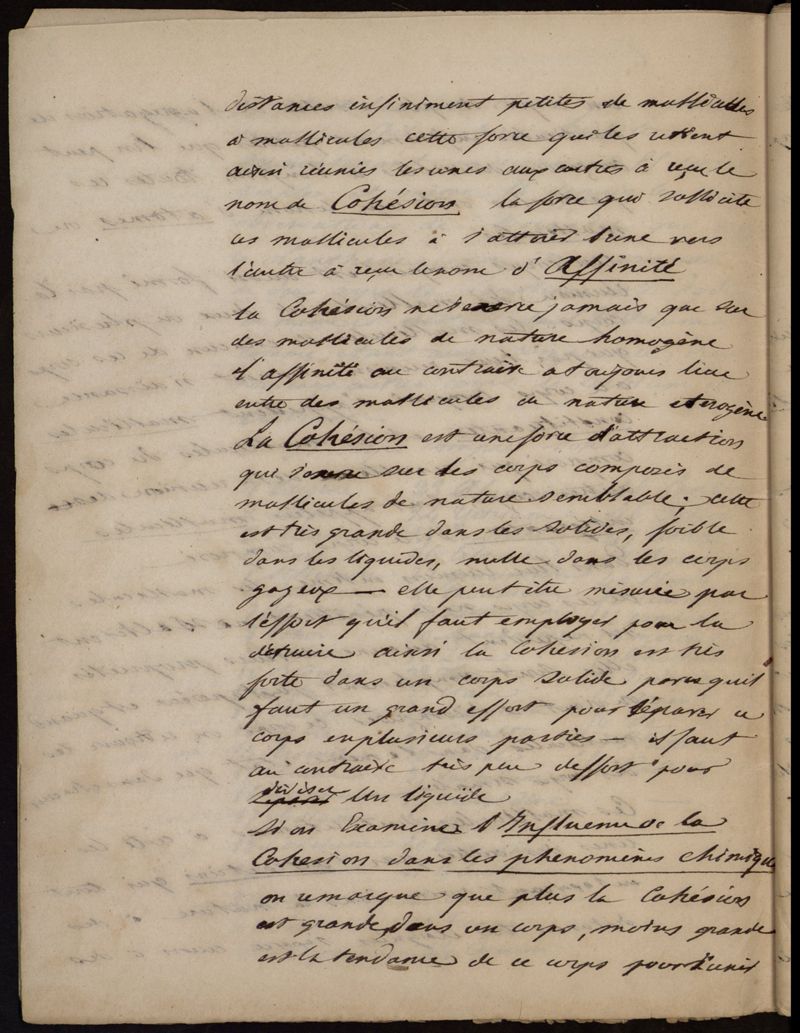 distances infiniment petites de mollicules
à mollicules cette force qui les retient
ainsi réunies les unes aux autres à reçu le
nom de Cohésion la force qui sollicite
ces mollicules à s'attirer l'une vers
l'autre à reçu le nom d'Affinité
la Cohésion ne s'exerce jamais que sur
des mollicules de nature homogène
l'affinité au contraire a toujours lieu
entre des mollicules de nature eterogène
La Cohésion est une force d'attraction
qui s'exerce sur les corps composés de
mollicules de nature semblable; cette
est très grande dans les solides, foible
dans les liquides, nulle dans les corps
gazeux — elle peut être mésurée par
l'effort qu'il faut employer pour la
détruire ainsi la Cohésion est très
forte dans un corps solide parcequ'il
faut un grand effort pour séparer ce
corps en plusieurs parties — il faut
au contraire très peu d'effort pour
diviser
séparer Un liquide
Si on Examine l'Influence de la
Cohesion dans les phenomènes chimiques
on remarque que plus la Cohésion
est grande dans un corps, moins grande
est la tendance de ce corps pour s'unir